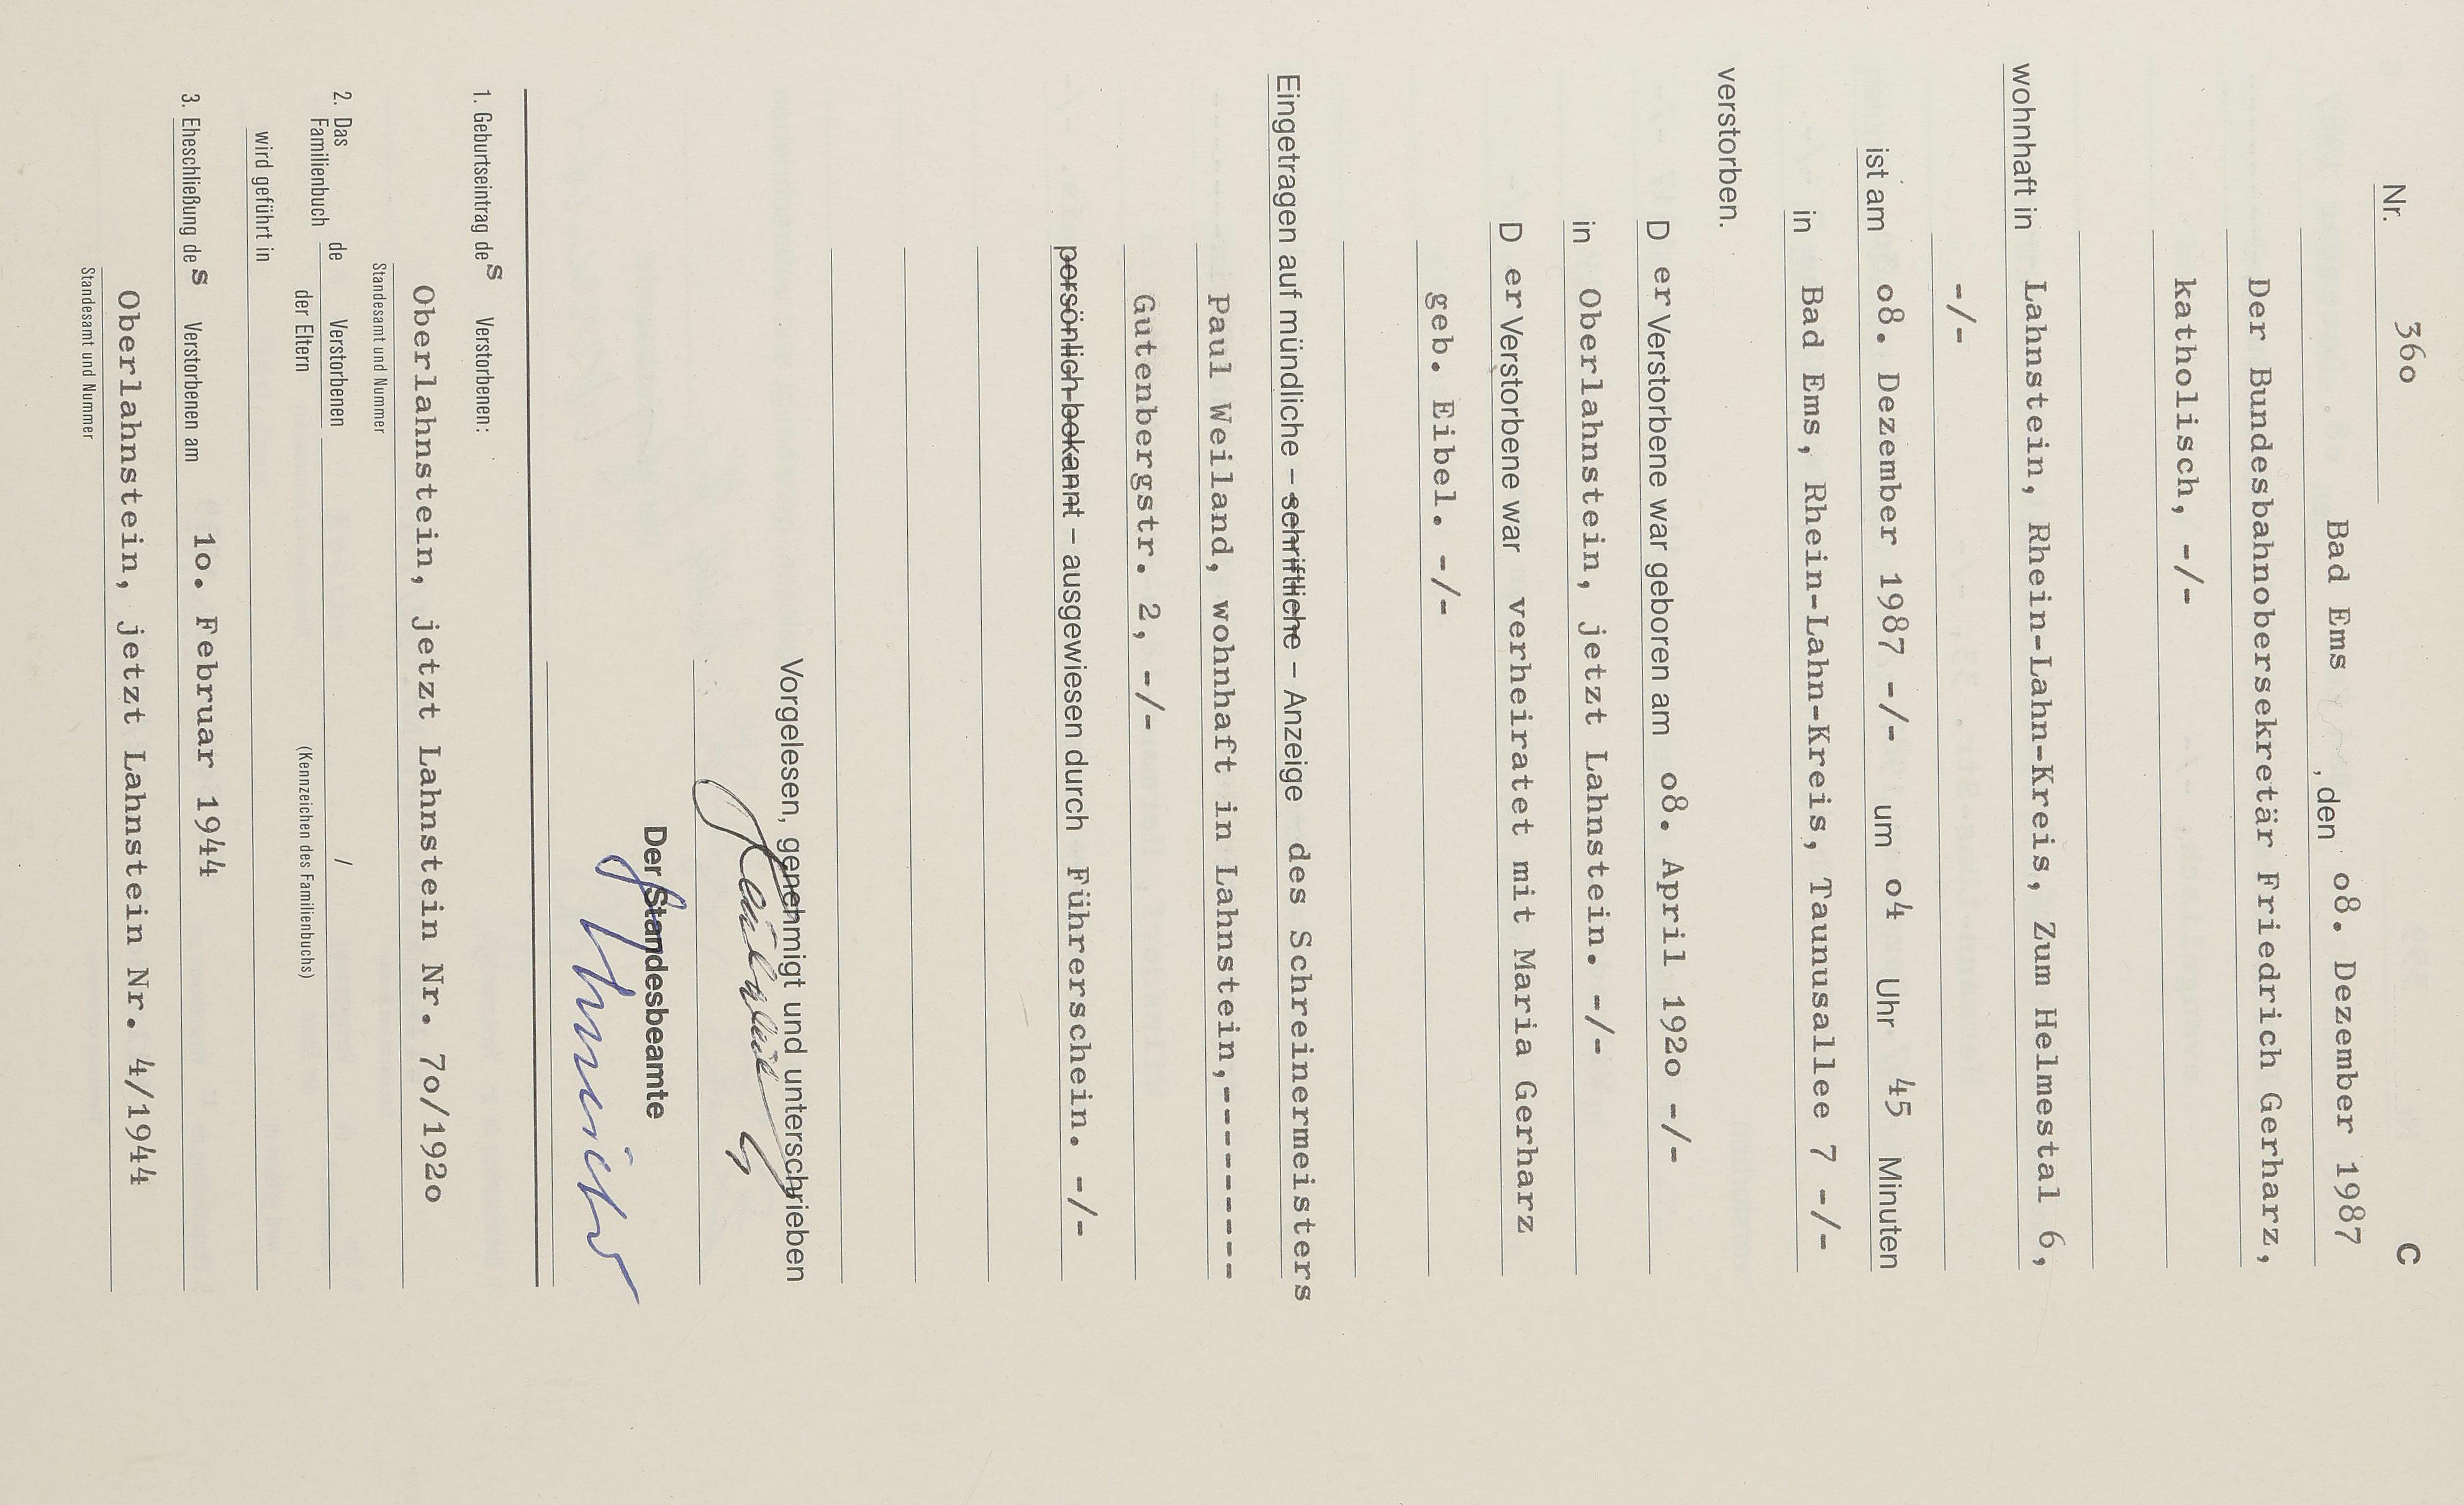 C
Nr. 36o
Bad Ems, den o8. Dezember 1987
Der Bundesbahnobersekretär Friedrich Gerharz,
katholisch, -/-
wohnhaft in Lahnstein, Rhein-Lahn-Kreis, Zum Helmestal 6,
-/-
ist am o8. Dezember 1987 -/- um o4 Uhr 45 Minuten
in Bad Ems, Rhein-Lahn-Kreis, Taunusallee 7 -/-
verstorben.
D er Verstorbene war geboren am o8. April 192o -/-
in Oberlahnstein, jetzt Lahnstein. -/-
D er Verstorbene war verheiratet mit Maria Gerharz
geb. Eibel. -/-
Eingetragen auf mündliche – schriftliche – Anzeige des Schreinermeisters
Paul Weiland, wohnhaft in Lahnstein,---------
Gutenbergstr. 2, -/-
persönlich bekannt – ausgewiesen durch Führerschein. -/-
Vorgelesen, genehmigt und unterschrieben
Der Standesbeamte
1. Geburtseintrag des Verstorbenen:
Oberlahnstein, jetzt Lahnstein Nr. 7o/192o
Standesamt und Nummer
2. Das Familienbuch de Verstorbenen /
der Eltern
(Kennzeichen des Familienbuchs)
wird geführt in
3. Eheschließung des Verstorbenen am 1o. Februar 1944
Oberlahnstein, jetzt Lahnstein Nr. 4/1944
Standesamt und Nummer